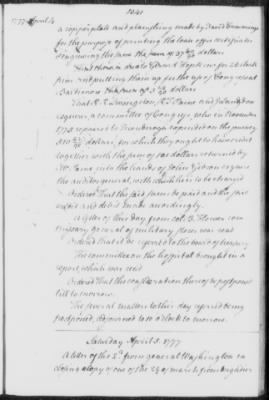 1777 April 4
a copperplate and planishing made by David Hemmings
for the purpose of printing the loan office certificates
& engraving the same the sum of 37 dollars
That there is due to David Hopkins for 26 clock
pins and putting them up for the use of Congress at
Baltimore the sum of 3 dollars
committee of Congress, who in November
1776 repaired to Ticonderoga expended on the journey
dollars, for which they ought to have credit
together with the sum of 100 dollars returned by
Mr Paine into the hands of John Gibson esquire
the auditor general, with which he is to be charged
Ordered That the said sums be paid and the said
credit and debit made accordingly.
A letter of this day from col. B. Flower com-
missary general of military stores was read
Ordered that it be referred to the board of treasury
The committee on the hospital brought in a
report, which was read
Ordered That the consideration thereof be postponed
till to morrow.
The several matters to this day referred being
postponed, Adjourned to 10 oClock to morrow.
Saturday April 5. 1777
A letter of the 2d from general Washington en-
closing a copy of one of the 29 of march from brigadier